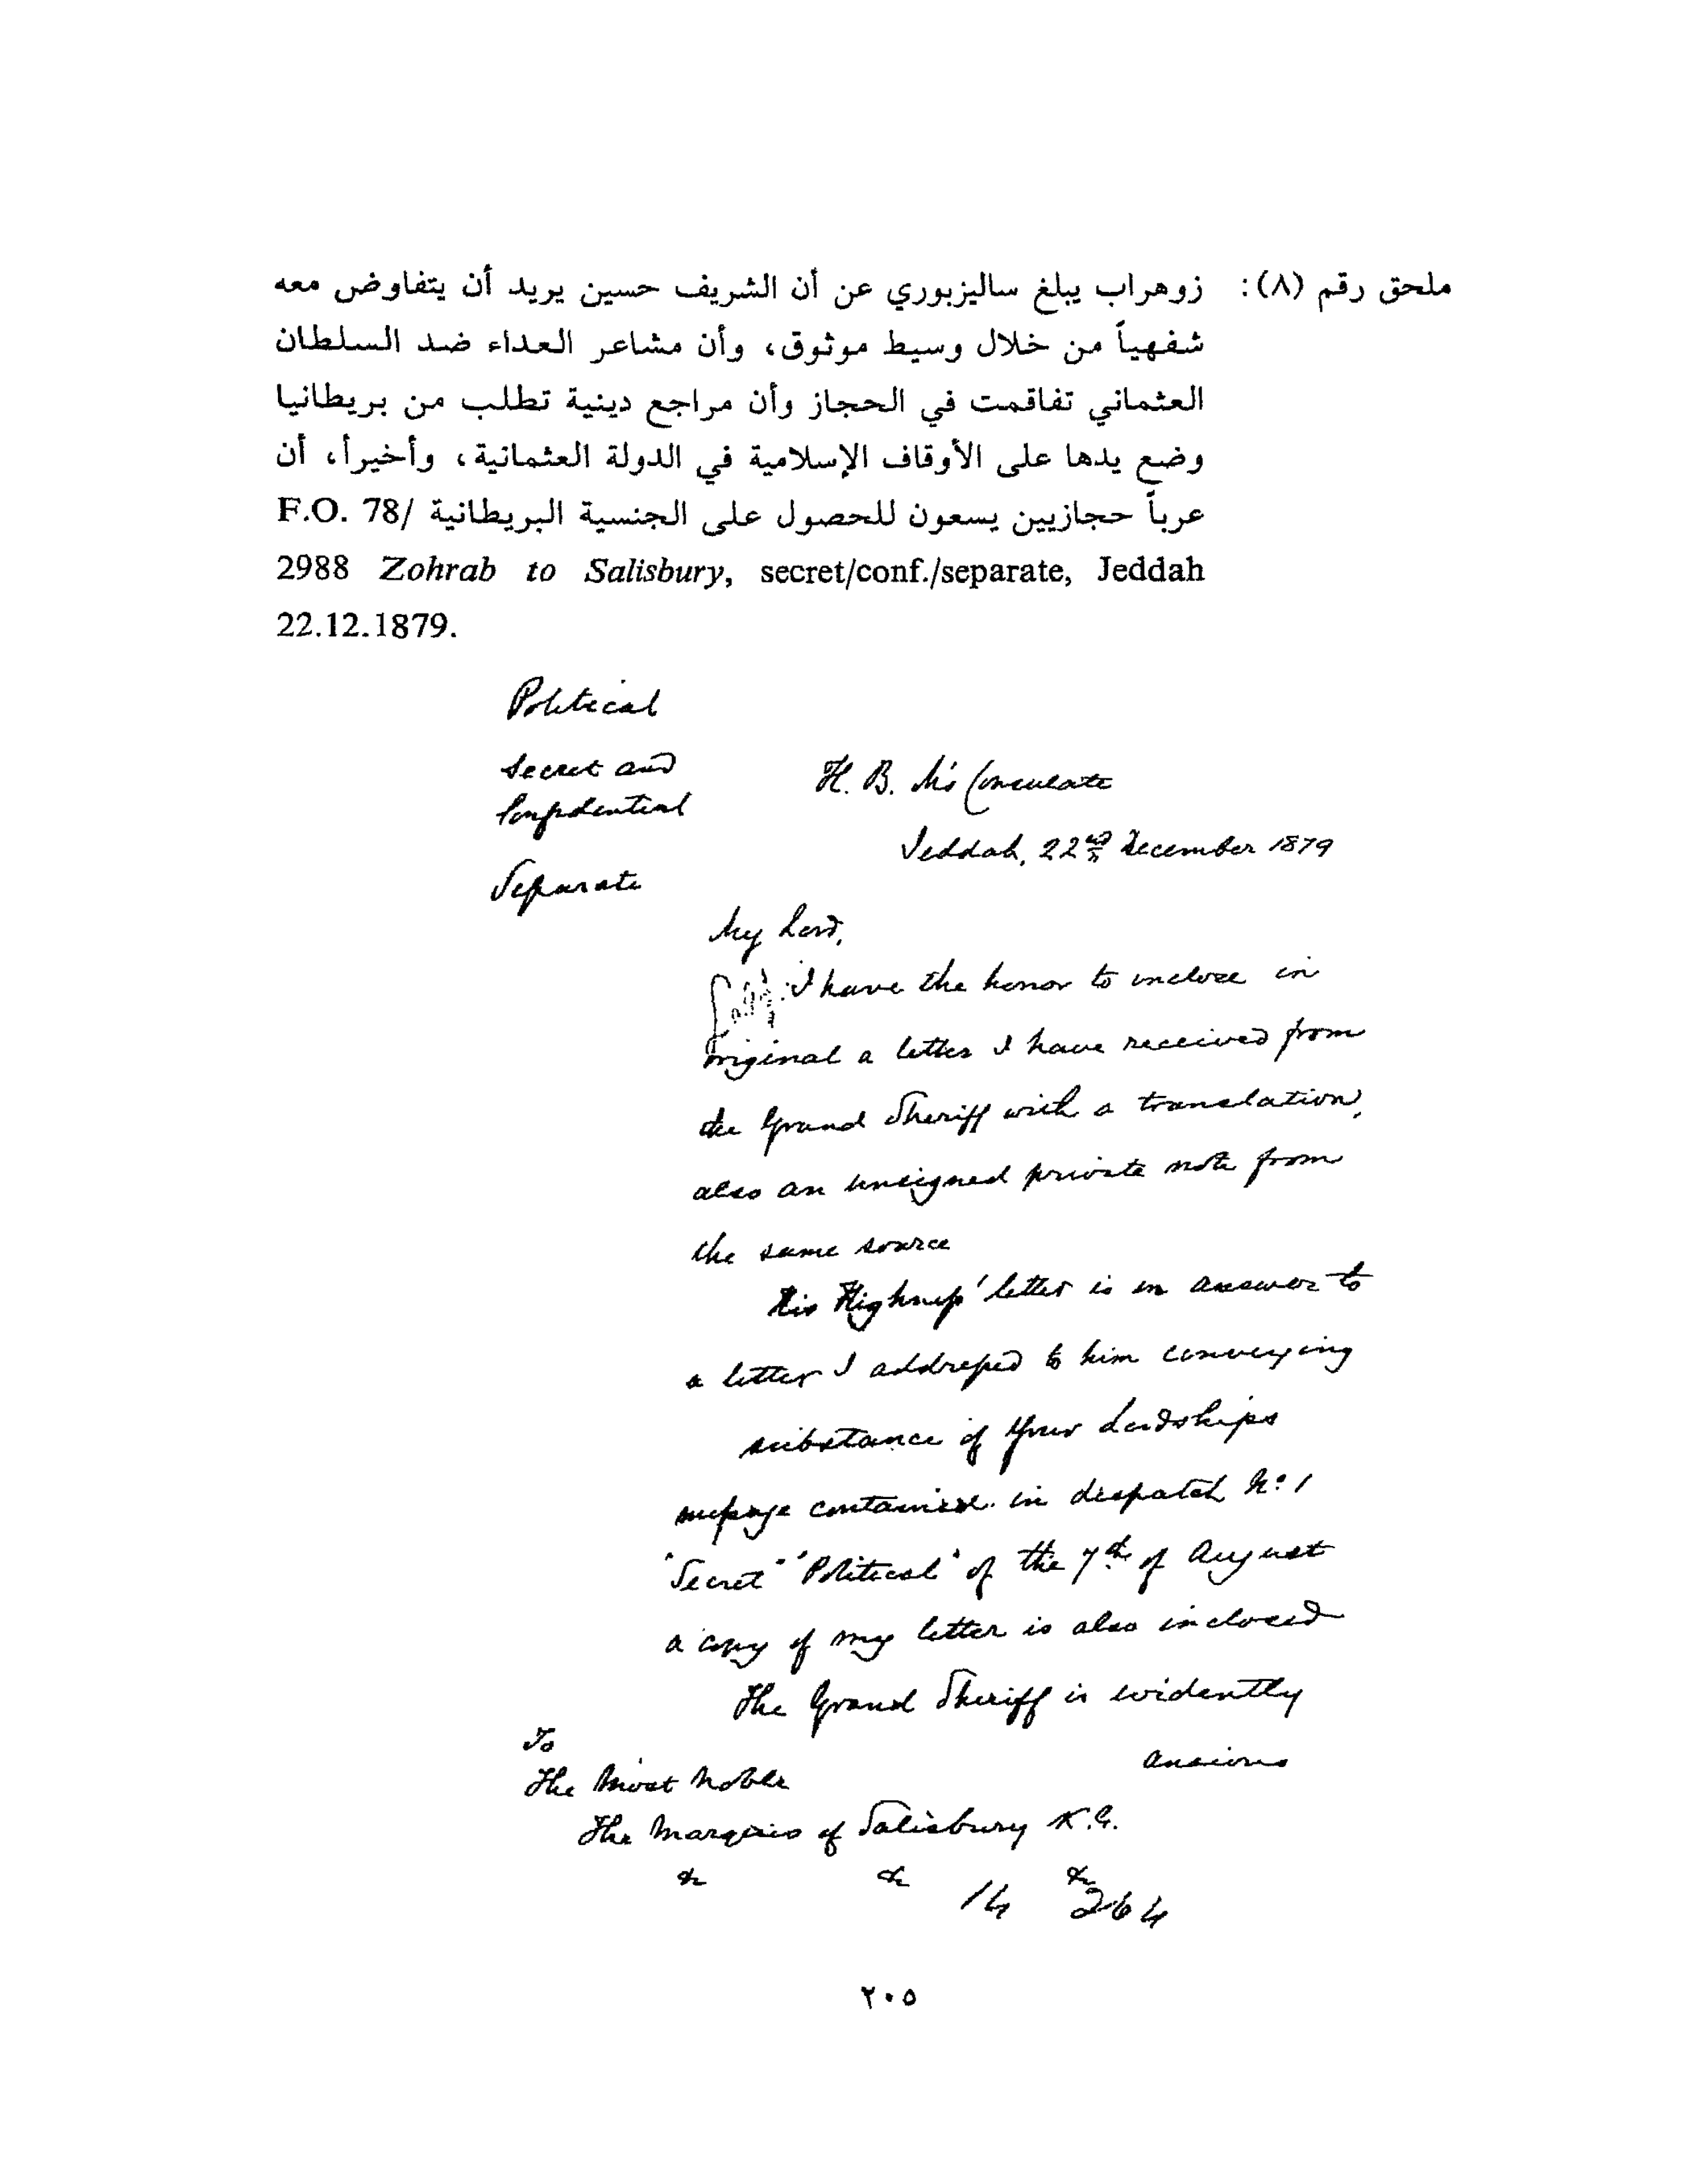 ملحق رقم (٨): زوهراب يبلغ ساليزبوري عن أن الشريف حسين يريد أن يتفاوض معه
شفهياً من خلال وسيط موثوق، وأن مشاعر العداء ضد السلطان
العثماني تفاقمت في الحجاز وأن مراجع دينية تطلب من بريطانيا
وضع يدها على الأوقاف الإسلامية في الدولة العثمانية، وأخيراً، أن
عرباً حجازيين يسعون للحصول على الجنسية البريطانية F.O. 78/
2988 Zohrab to Salisbury, secret/conf./separate, Jeddah
22.12.1879.
Political
Secret and
Confidential
Separate
H. B. M's Consulate
Jeddah, 22nd December 1879
My Lord,
I have the honor to inclose in
original a letter I have received from
the Grand Sheriff with a translation,
also an unsigned private note from
the same source
His Highness' letter is in answer to
a letter I addressed to him conveying
substance of Your Lordships
message contained in dispatch No. 1
"Secret" "Political" of the 7th of August
a copy of my letter is also inclosed
The Grand Sheriff is evidently
anxious
To
The Most Noble
The Marquis of Salisbury K.G.
&c &c &c
14 264
٢٠٥